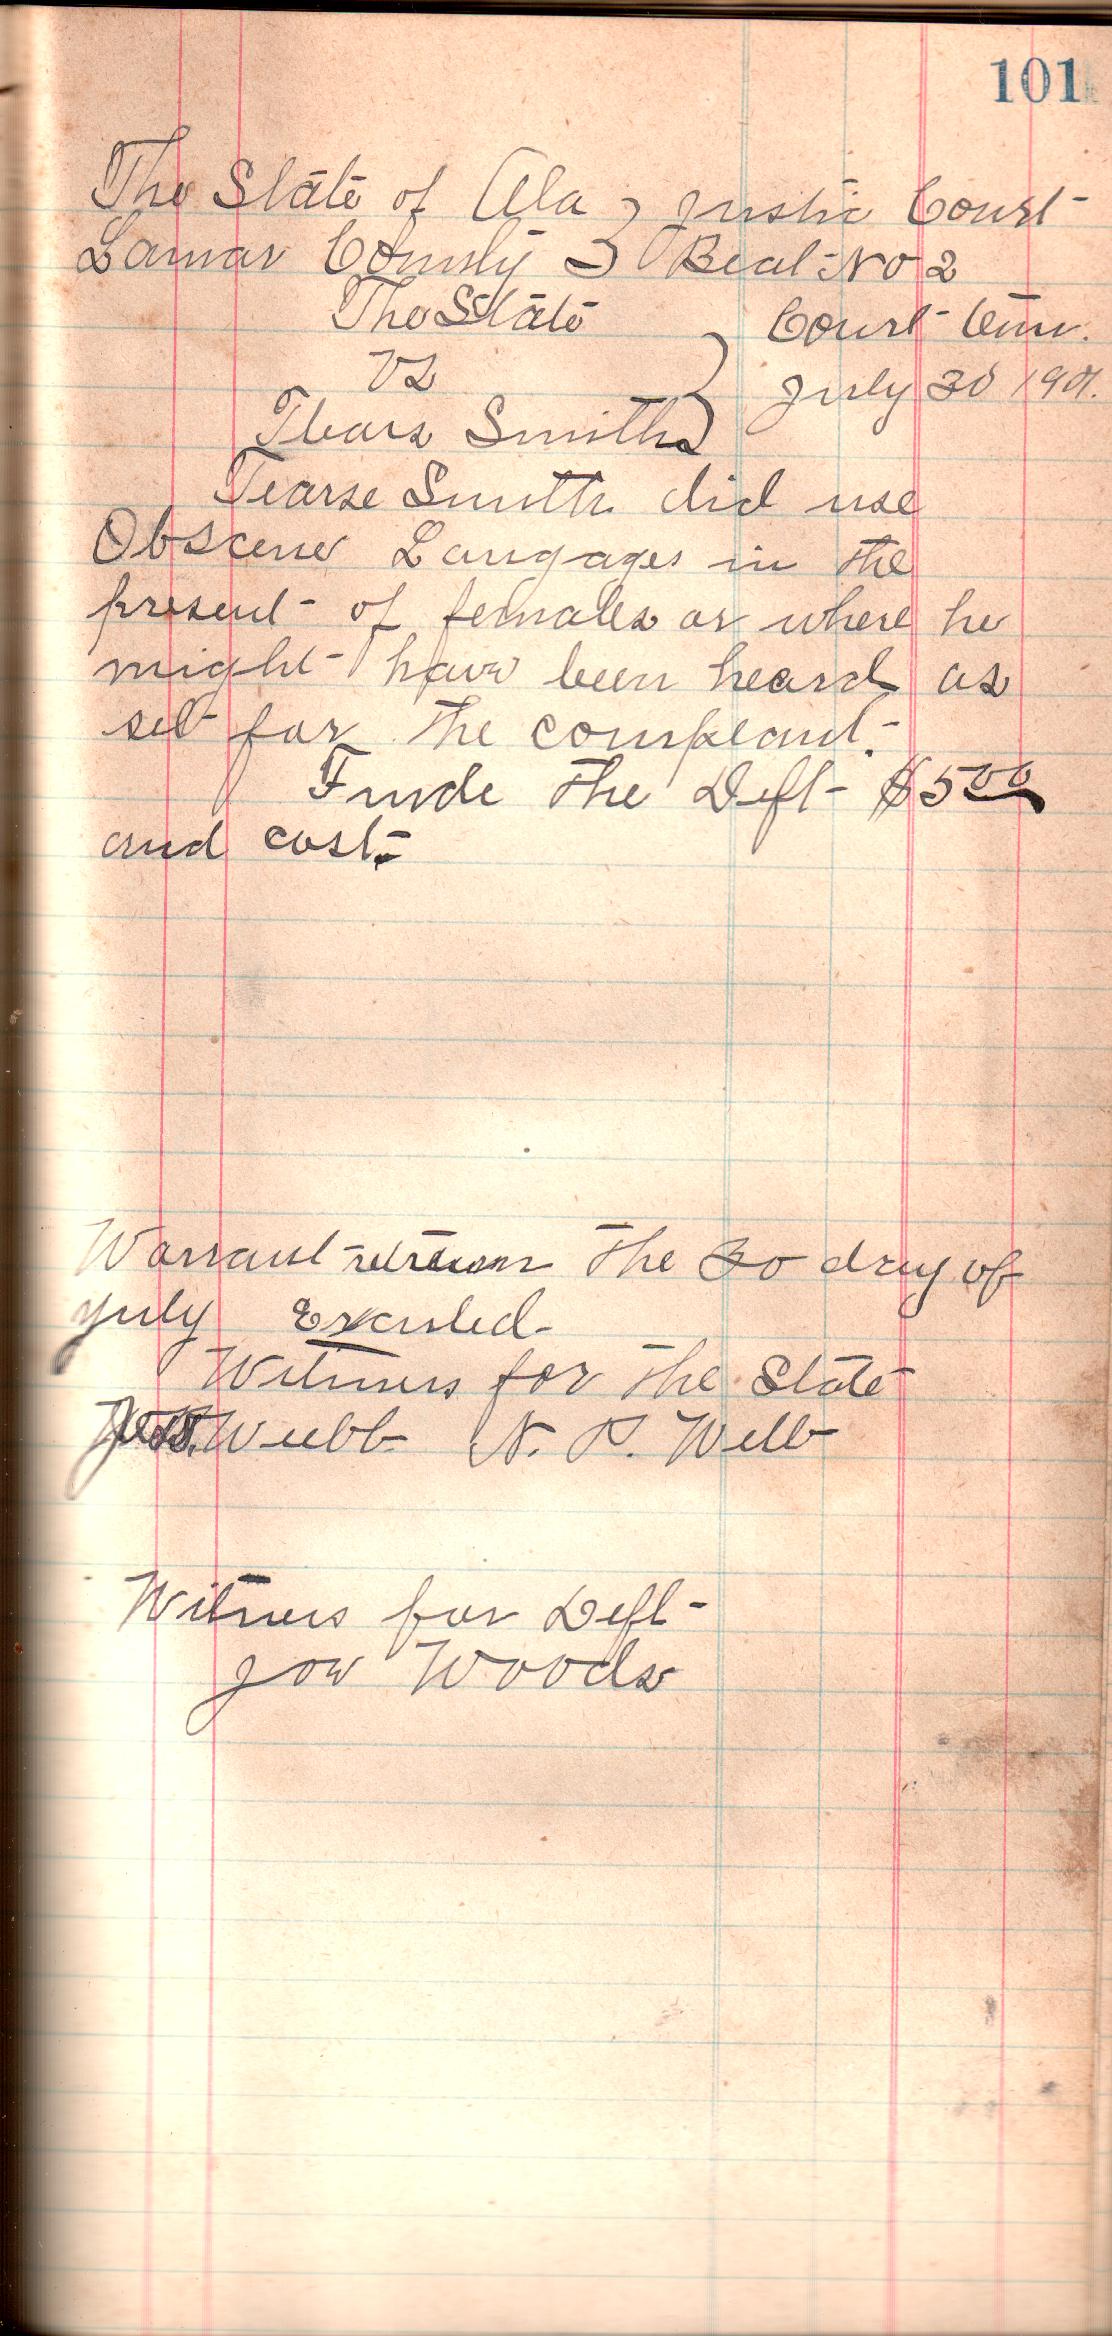 101
The State of Ala } Justic Court
Lamar County } Beat No 2
The State Court Term.
vs } July 30 1901.
Tbars Smith
Tearse Smith did use
Obscene Langages in the
present of females or where he
might have been heard as
set for the complaint.
Finde the Deft $5 00
and cost.
Warrant retreun the 30 day of
July Excuted
Witness for the State
Webb N. P. Webb
Witness for Deft
Jow Woods